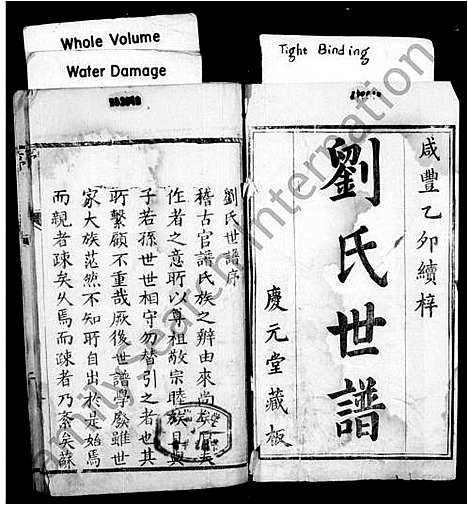 Whole Volume
Water Damage
Tight Binding
咸豐乙卯續梓
劉氏世譜
慶元堂藏板
劉氏世譜序
稽古官譜氏族之辨由來尚矣
作者之意所以尊祖敬宗睦族
子若孫世世相守勿替引之者也其
所繫顧不重哉厥後世譜學廢雖世
家大族茫然不知所自出於是始焉
而親者疎矣久焉而疎者乃紊矣蘇
FamilySearch International